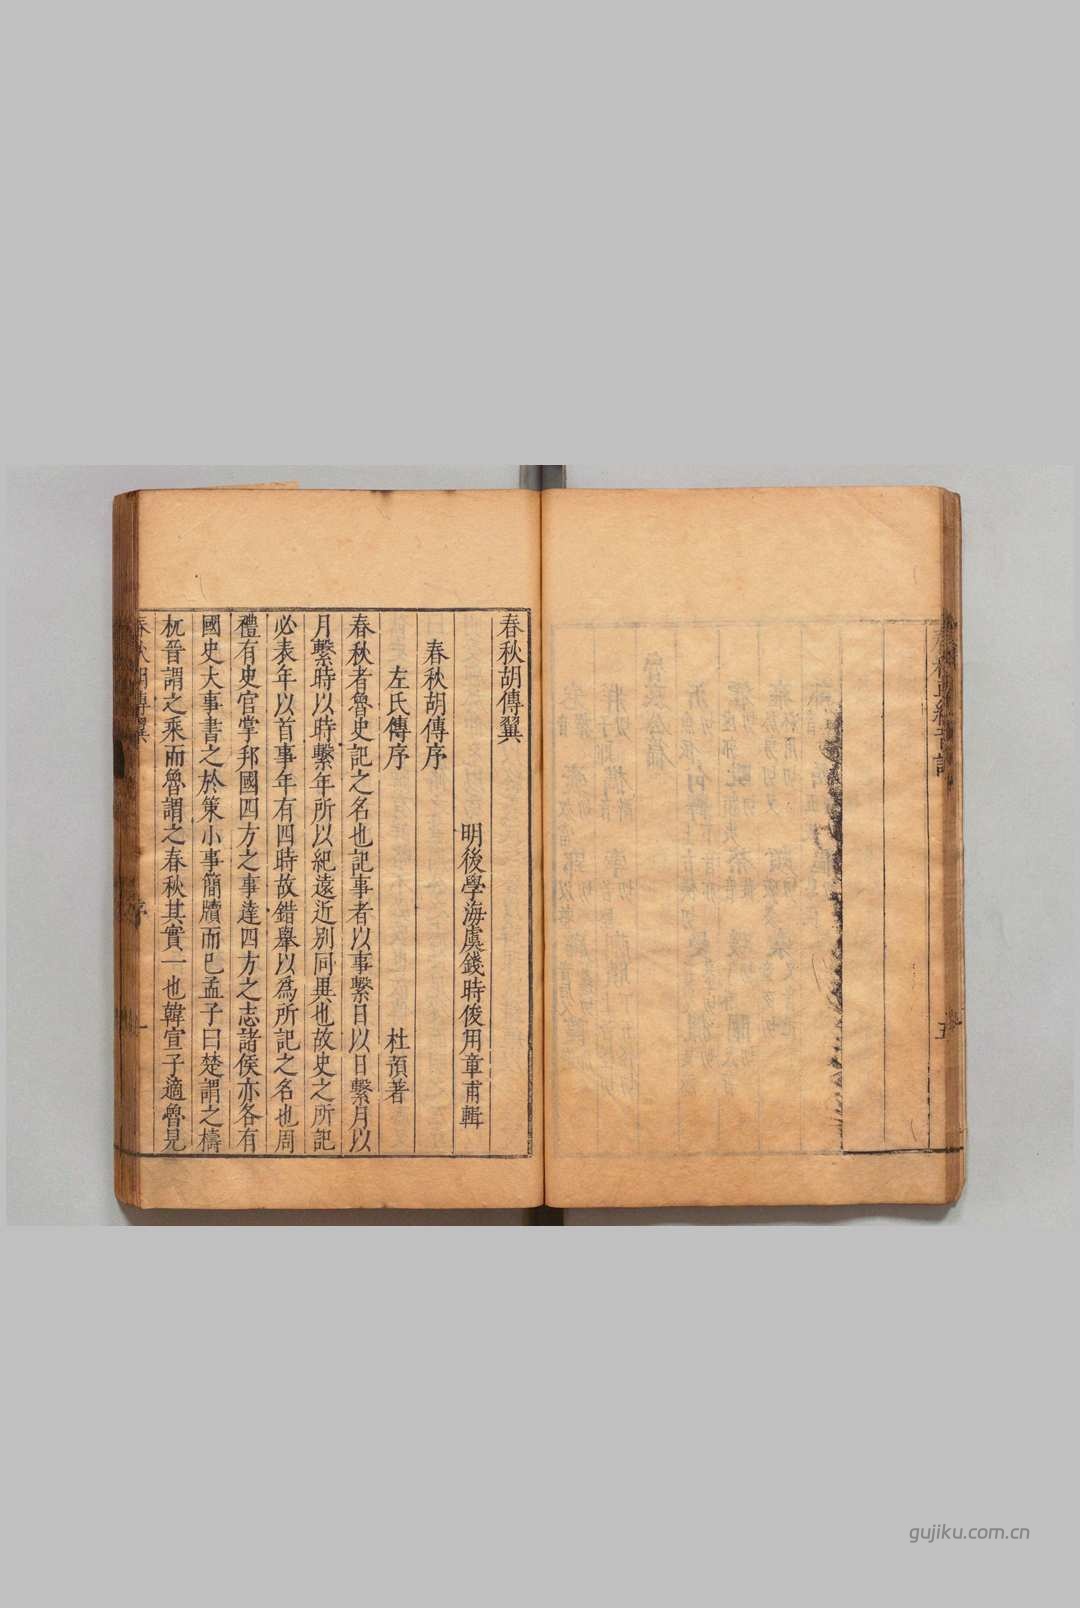 春秋胡傳翼
明後學海虞錢時俊用章甫輯
春秋胡傳序
左氏傳序
杜預著
春秋者魯史記之名也記事者以事繫日以日繫月以
月繫時以時繫年所以紀遠近別同異也故史之所記
必表年以首事年有四時故錯舉以為所記之名也周
禮有史官掌邦國四方之事達四方之志諸侯亦各有
國史大事書之於策小事簡牘而已孟子曰楚謂之檮
杌晉謂之乘而魯謂之春秋其實一也韓宣子適魯見
春秋胡傳翼
序
一
五
gujiku.com.cn